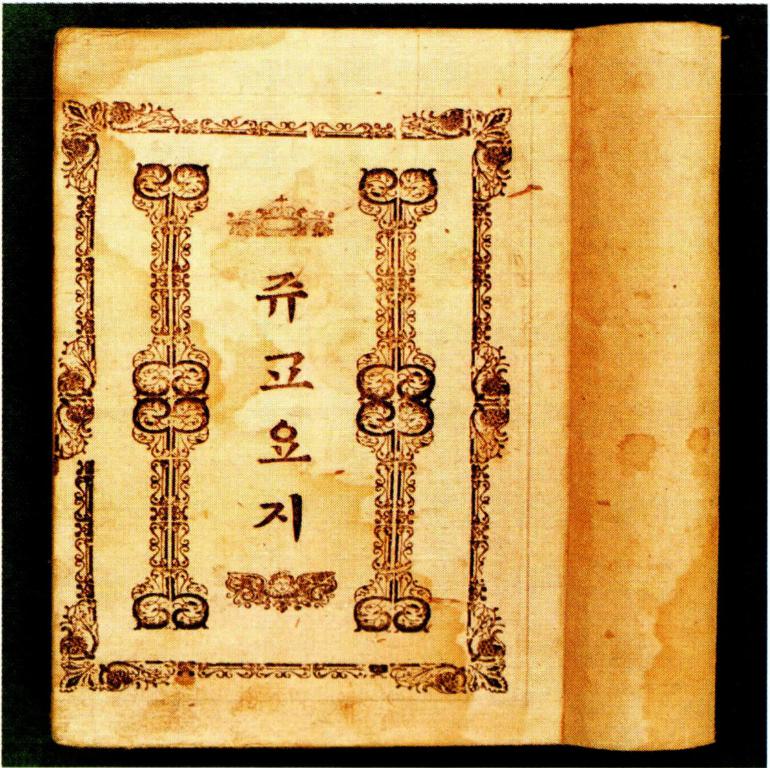 쥬교요지